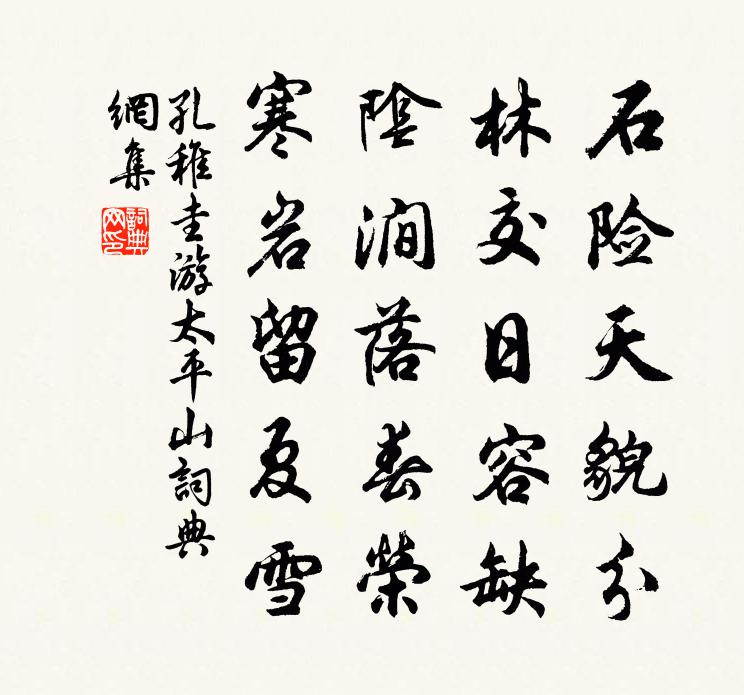 石险天貌分
林交日容缺
陰澗落春榮
寒岩留夏雪
孔稚圭游太平山詞典
網集
詞典
网印